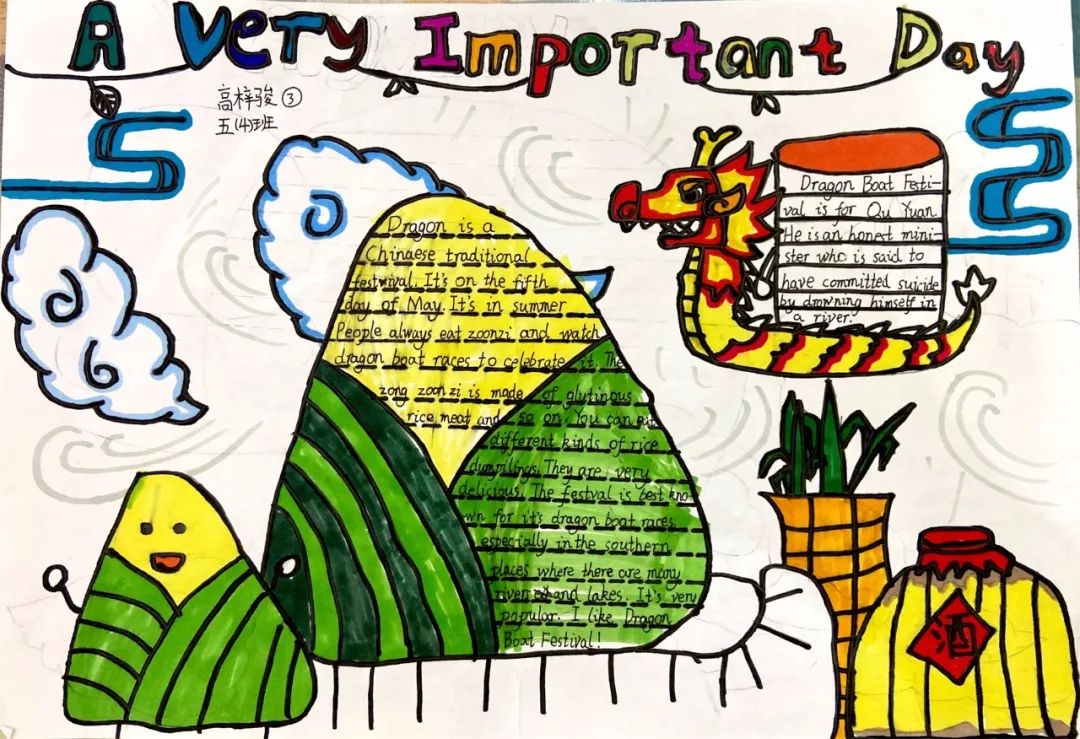 A Very Important Day
高梓骏 ③
五(4)班
Dragon is a
Chinaese traditional
festival. It's on the fifth
day of May. It's in summer
People always eat zoonzi and watch
dragon boat races to celebrate it. The
zong zoonzi is made of glutinous
rice, meat and so on. You can put
different kinds of rice
dumpilings. They are very
delicious. The festval is best kno-
wn for it's dragon boat races,
especially in the southern
places where there are many
rivers and lakes. It's very
popular. I like Dragon
Boat Festival!
Dragon Boat Festi-
val is for Qu Yuan
He is an honest mini-
ster who is said to
have committed suicide
by drowning himself in
a river.
酒